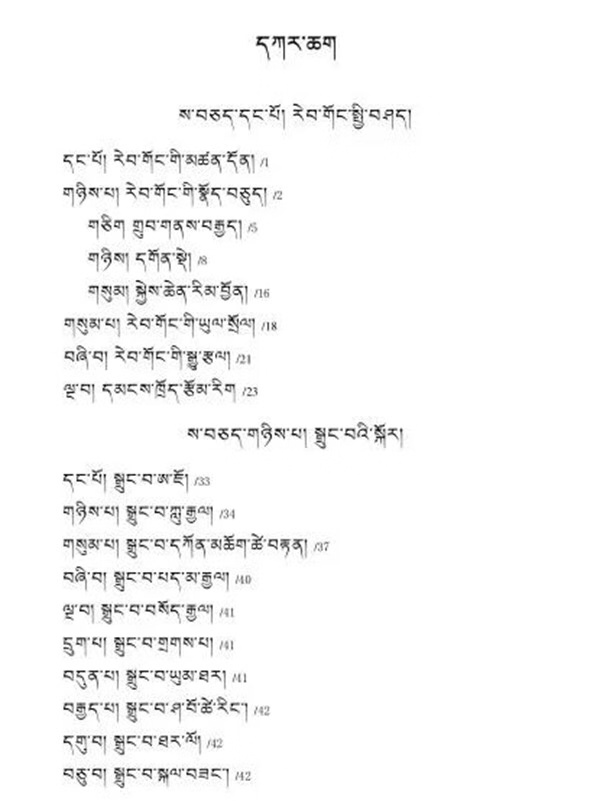 དཀར་ཆག
ས་བཅད་དང་པོ། རེབ་གོང་སྤྱི་བཤད།
དང་པོ། རེབ་གོང་གི་མཚན་དོན། /1
གཉིས་པ། རེབ་གོང་གི་སྣོད་བཅུད། /2
གཅིག གྲུབ་གནས་བརྒྱད། /5
གཉིས། དགོན་སྡེ། /8
གསུམ། སྐྱེས་ཆེན་རིམ་བྱོན། /16
གསུམ་པ། རེབ་གོང་གི་ཡུལ་སྲོལ། /18
བཞི་བ། རེབ་གོང་གི་སྒྱུ་རྩལ། /21
ལྔ་བ། དམངས་ཁྲོད་རྩོམ་རིག /23
ས་བཅད་གཉིས་པ། སྒྲུང་བའི་སྐོར།
དང་པོ། སྒྲུང་བ་ཨ་ཇོ། /33
གཉིས་པ། སྒྲུང་བ་ཀླུ་རྒྱལ། /34
གསུམ་པ། སྒྲུང་བ་དཀོན་མཆོག་ཚེ་བརྟན། /37
བཞི་བ། སྒྲུང་བ་པད་མ་རྒྱལ། /40
ལྔ་བ། སྒྲུང་བ་བསོད་རྒྱལ། /41
དྲུག་པ། སྒྲུང་བ་གྲགས་པ། /41
བདུན་པ། སྒྲུང་བ་ཡུམ་ཐར། /41
བརྒྱད་པ། སྒྲུང་བ་ཤ་བོ་ཚེ་རིང་། /42
དགུ་བ། སྒྲུང་བ་ཐར་ལོ། /42
བཅུ་བ། སྒྲུང་བ་སྐལ་བཟང་། /42